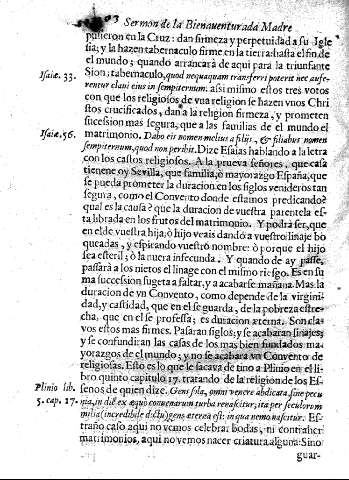 Sermon de la Bienauenturada Madre
pusieron en la Cruz: dan firmeza y perpetuidad a su Igle
sia; y la hazen tabernaculo firme en la tierra: hasta el fin de
el mundo; quando arrancará de aqui para la triunfante
Isaiæ. 33.
Sion: tabernaculo, quod nequaquam transferri poterit nec aufe-
rentur claui eius in sempiternum. asi mismo estos tres votos
con que los religiosos de vna religion se hazen vnos Chri
stos crucificados, dan a la religion firmeza, y prometen
sucession mas segura, que a las familias de el mundo el
Isaiæ. 56.
matrimonio. Dabo eis nomen melius a filijs, & filiabus nomen
sempiternum, quod non peribit. Dize Esaias hablando a la letra
con los castos religiosos. A la prueua señores, que casa
tiene oy Seuilla, que familia, ò mayorazgo España, que
se pueda prometer la duracion en los siglos venideros tan
segura, como el Conuento donde estamos predicando?
qual es la causa? que la duracion de vuestra parentela es-
ta librada en los frutos del matrimonio. Y podra ser, que
en el de vuestra hija, ò hijo veais dando a vuestro linaje bo
queadas, y espirando vuestro nombre: ò porque el hijo
sea esteril; ò la nuera infecunda. Y quando de ay passe,
passarà a los nietos el linage con el mismo riesgo. Es en su
ma sucession sugeta a faltar, y a acabarse mañana. Mas la
duracion de vn Conuento, como depende de la virgini-
dad, y castidad, que en el se guarda, de la pobreza estre-
cha, que en el se professa; es duracion eterna. Son cla-
uos estos mas firmes. Passaran siglos; y se acabaran linajes;
y se confundiran las casas de los mas bien fundados ma-
yorazgos de el mundo; y no se acabara vn Conuento de
religiosas. Esto es lo que se sacaua de tino a Plinio en el li
bro quinto capitulo 17. tratando de la religion de los Es-
Plinio lib. 5. cap. 17.
senos de quien dize. Gens sola, omni venere abdicata, sine pecu
nia, in diē ex æquo conuenarum turba renascitur; ita per seculorum
milia (incredibile dictu) gens æterna est: in qua nemo nascitur. Es-
traño caso aqui no vemos celebrar bodas, ni contraher
matrimonios, aqui no vemos nacer criatura alguna: Sino
guar-